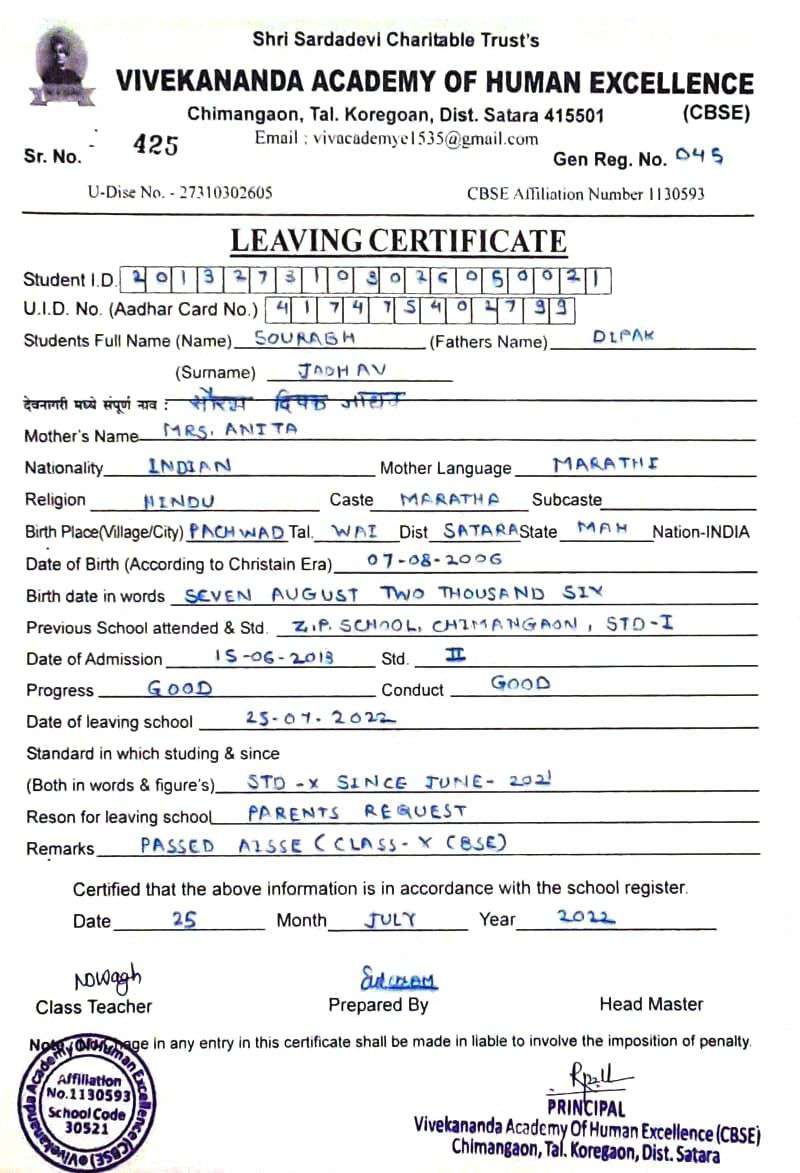 Shri Sardadevi Charitable Trust's
VIVEKANANDA ACADEMY OF HUMAN EXCELLENCE
Chimangaon, Tal. Koregoan, Dist. Satara 415501 (CBSE)
Email : vivacademye1535@gmail.com
Sr. No. 425 Gen Reg. No. 045
U-Dise No. - 27310302605 CBSE Affiliation Number 1130593
LEAVING CERTIFICATE
Student I.D. 2013273103026050021
U.I.D. No. (Aadhar Card No.) 417475402799
Students Full Name (Name) SOURABH (Fathers Name) DIPAK
(Surname) JADHAV
देवनागरी मध्ये संपूर्ण नाव : सौरभ दिपक जाधव
Mother's Name MRS. ANITA
Nationality INDIAN Mother Language MARATHI
Religion HINDU Caste MARATHA Subcaste
Birth Place(Village/City) PACHWAD Tal. WAI Dist SATARA State MAH Nation-INDIA
Date of Birth (According to Christain Era) 07-08-2006
Birth date in words SEVEN AUGUST TWO THOUSAND SIX
Previous School attended & Std. Z.P. SCHOOL, CHIMANGAON, STD-I
Date of Admission 15-06-2013 Std. II
Progress GOOD Conduct GOOD
Date of leaving school 25-07-2022
Standard in which studing & since
(Both in words & figure's) STD-X SINCE JUNE-2021
Reson for leaving school PARENTS REQUEST
Remarks PASSED AISSE (CLASS-X CBSE)
Certified that the above information is in accordance with the school register.
Date 25 Month JULY Year 2022
NDWagh
Class Teacher Prepared By Head Master
Note : No change in any entry in this certificate shall be made in liable to involve the imposition of penalty.
Vivekananda Academy Of Human Excellence (CBSE)
Affiliation
No.1130593
School Code
30521
PRINCIPAL
Vivekananda Academy Of Human Excellence (CBSE)
Chimangaon, Tal. Koregaon, Dist. Satara